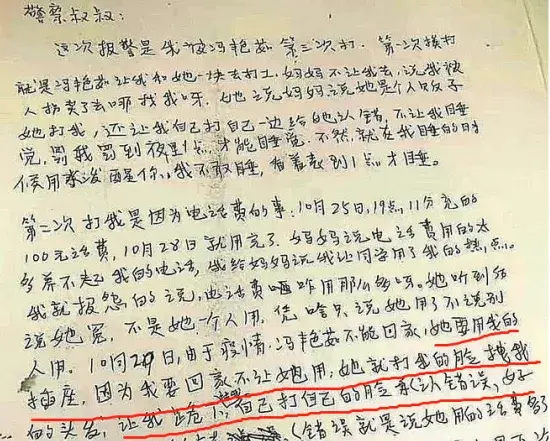 警察叔叔:
这次报警是我被冯艳茹第三次打.第一次挨打
就是冯艳茹让我和她一块去打工,妈妈不让我去,说我被
人拐卖了去哪找我呀.她说妈妈说她是个人贩子
她打我,还让我自己打自己一边给她认错,不让我睡
觉,罚我罚到夜里1点才能睡觉.不然,就在我睡的时
候用凉泼醒你,我不敢睡,看着表到1点才睡.
第二次打我是因为电话费的事:10月25日,19点,11分充的
100元话费,10月28日就用完了.妈妈说电话费用的太
多养不起我的电话,我给妈妈说我让同学用了我的热点.
我就报怨的说,电话费咋用那么多呀.她听到后
说她冤,不是她一个人用.凭啥只说她用了不说别
人用.10月29日,由于疫情.冯艳茹不能回家,她要用我的
插座,因为我要回家不让她用,她就打我的脸拽我
的头发,让我跪下,自己打自己的脸承认错误,好
(错误就是说她用的话费多了